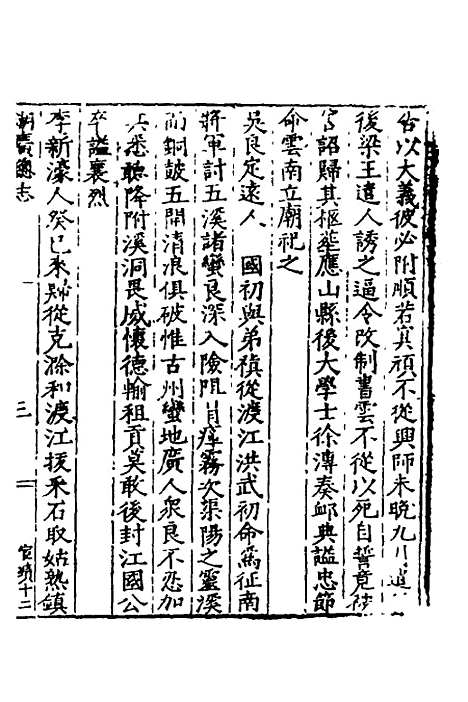 以大義彼必附順若冥頑不從興師未晚九月道
後梁王遣人誘之逼令改制書雲不從以死自誓竟被
害詔歸其柩葬應山縣後大學士徐溥奏卹典諡忠節
命雲南立廟祀之
吳良定遠人 國初與弟禎從渡江洪武初命爲征南
將軍討五溪諸蠻良深入險阻冒瘴霧次渠陽之靈溪
而銅皷五開清浪俱破惟古州蠻地廣人衆良不忍加
兵悉聽降附溪洞畏威懷德輸租貢莫敢後封江國公
卒諡襄烈
李新濠人癸巳來歸從克滁和渡江拔采石取姑熟鎮
湖廣總志 三 宦績十二